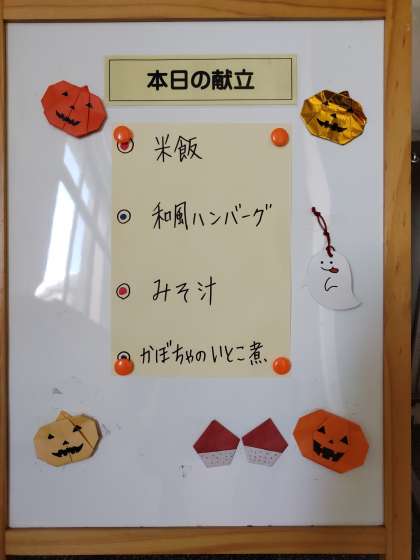 本日の献立
米飯
和風ハンバーグ
みそ汁
かぼちゃのいとこ煮